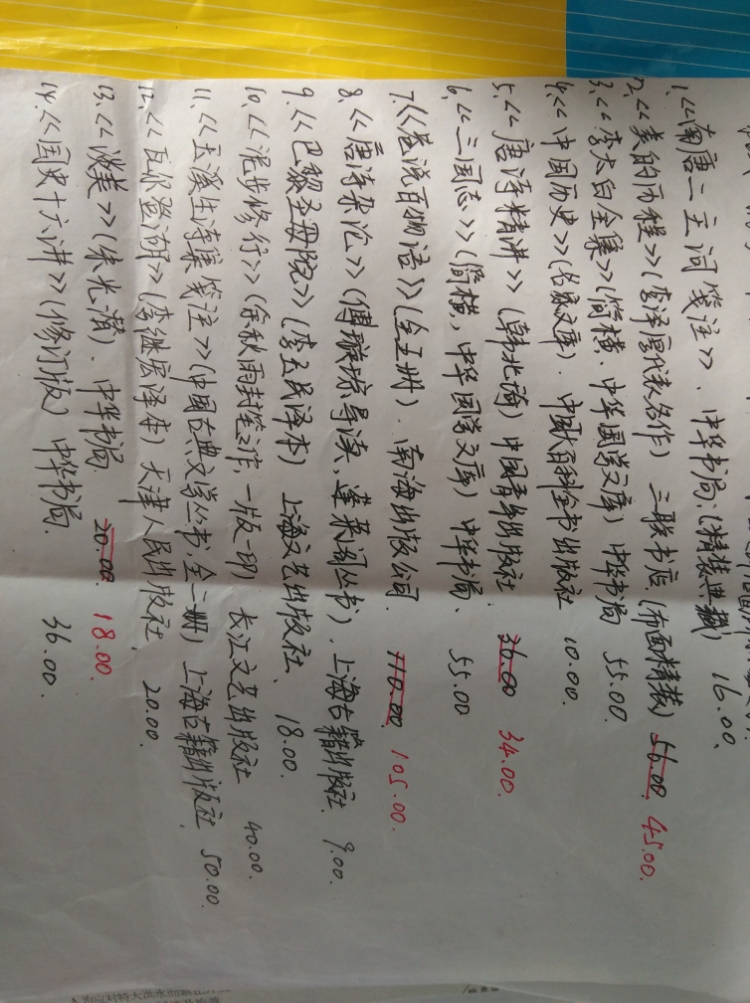 1.<<南唐二主词笺注>>、中华书局、(精装典藏) 16.00、
2.<<美的历程>>(李泽厚代表名作) 三联书店、(布面精装) 56.00 45.00.
3.<<李太白全集>>(简横、中华国学文库) 中华书局 55.00.
4.<<中国历史>>(名家文库). 中国大百科全书出版社 10.00.
5.<<唐诗精讲>> (韩兆琦) 中国青年出版社. 36.00 34.00.
6.<<三国志>>(简横,中华国学文库) 中华书局、 55.00
7.<<巷说百物语>>(全五册). 南海出版公司. 110.00. 105.00.
8.<<唐诗杂论>>(傅璇琮导读、蓬莱阁丛书). 上海古籍出版社. 9.00.
9.<<巴黎圣母院>>(李玉民译本) 上海文艺出版社、 18.00.
10.<<泥步修行>>(余秋雨封笔之作,一版一印) 长江文艺出版社 40.00.
11.<<玉溪生诗集笺注>>(中国古典文学丛书,全二册) 上海古籍出版社. 50.00.
12.<<瓦尔登湖>>(李继宏译本) 天津人民出版社. 20.00.
13.<<谈美>>(朱光潜). 中华书局 20.00. 18.00.
14.<<国史十六讲>>(修订版) 中华书局. 36.00.